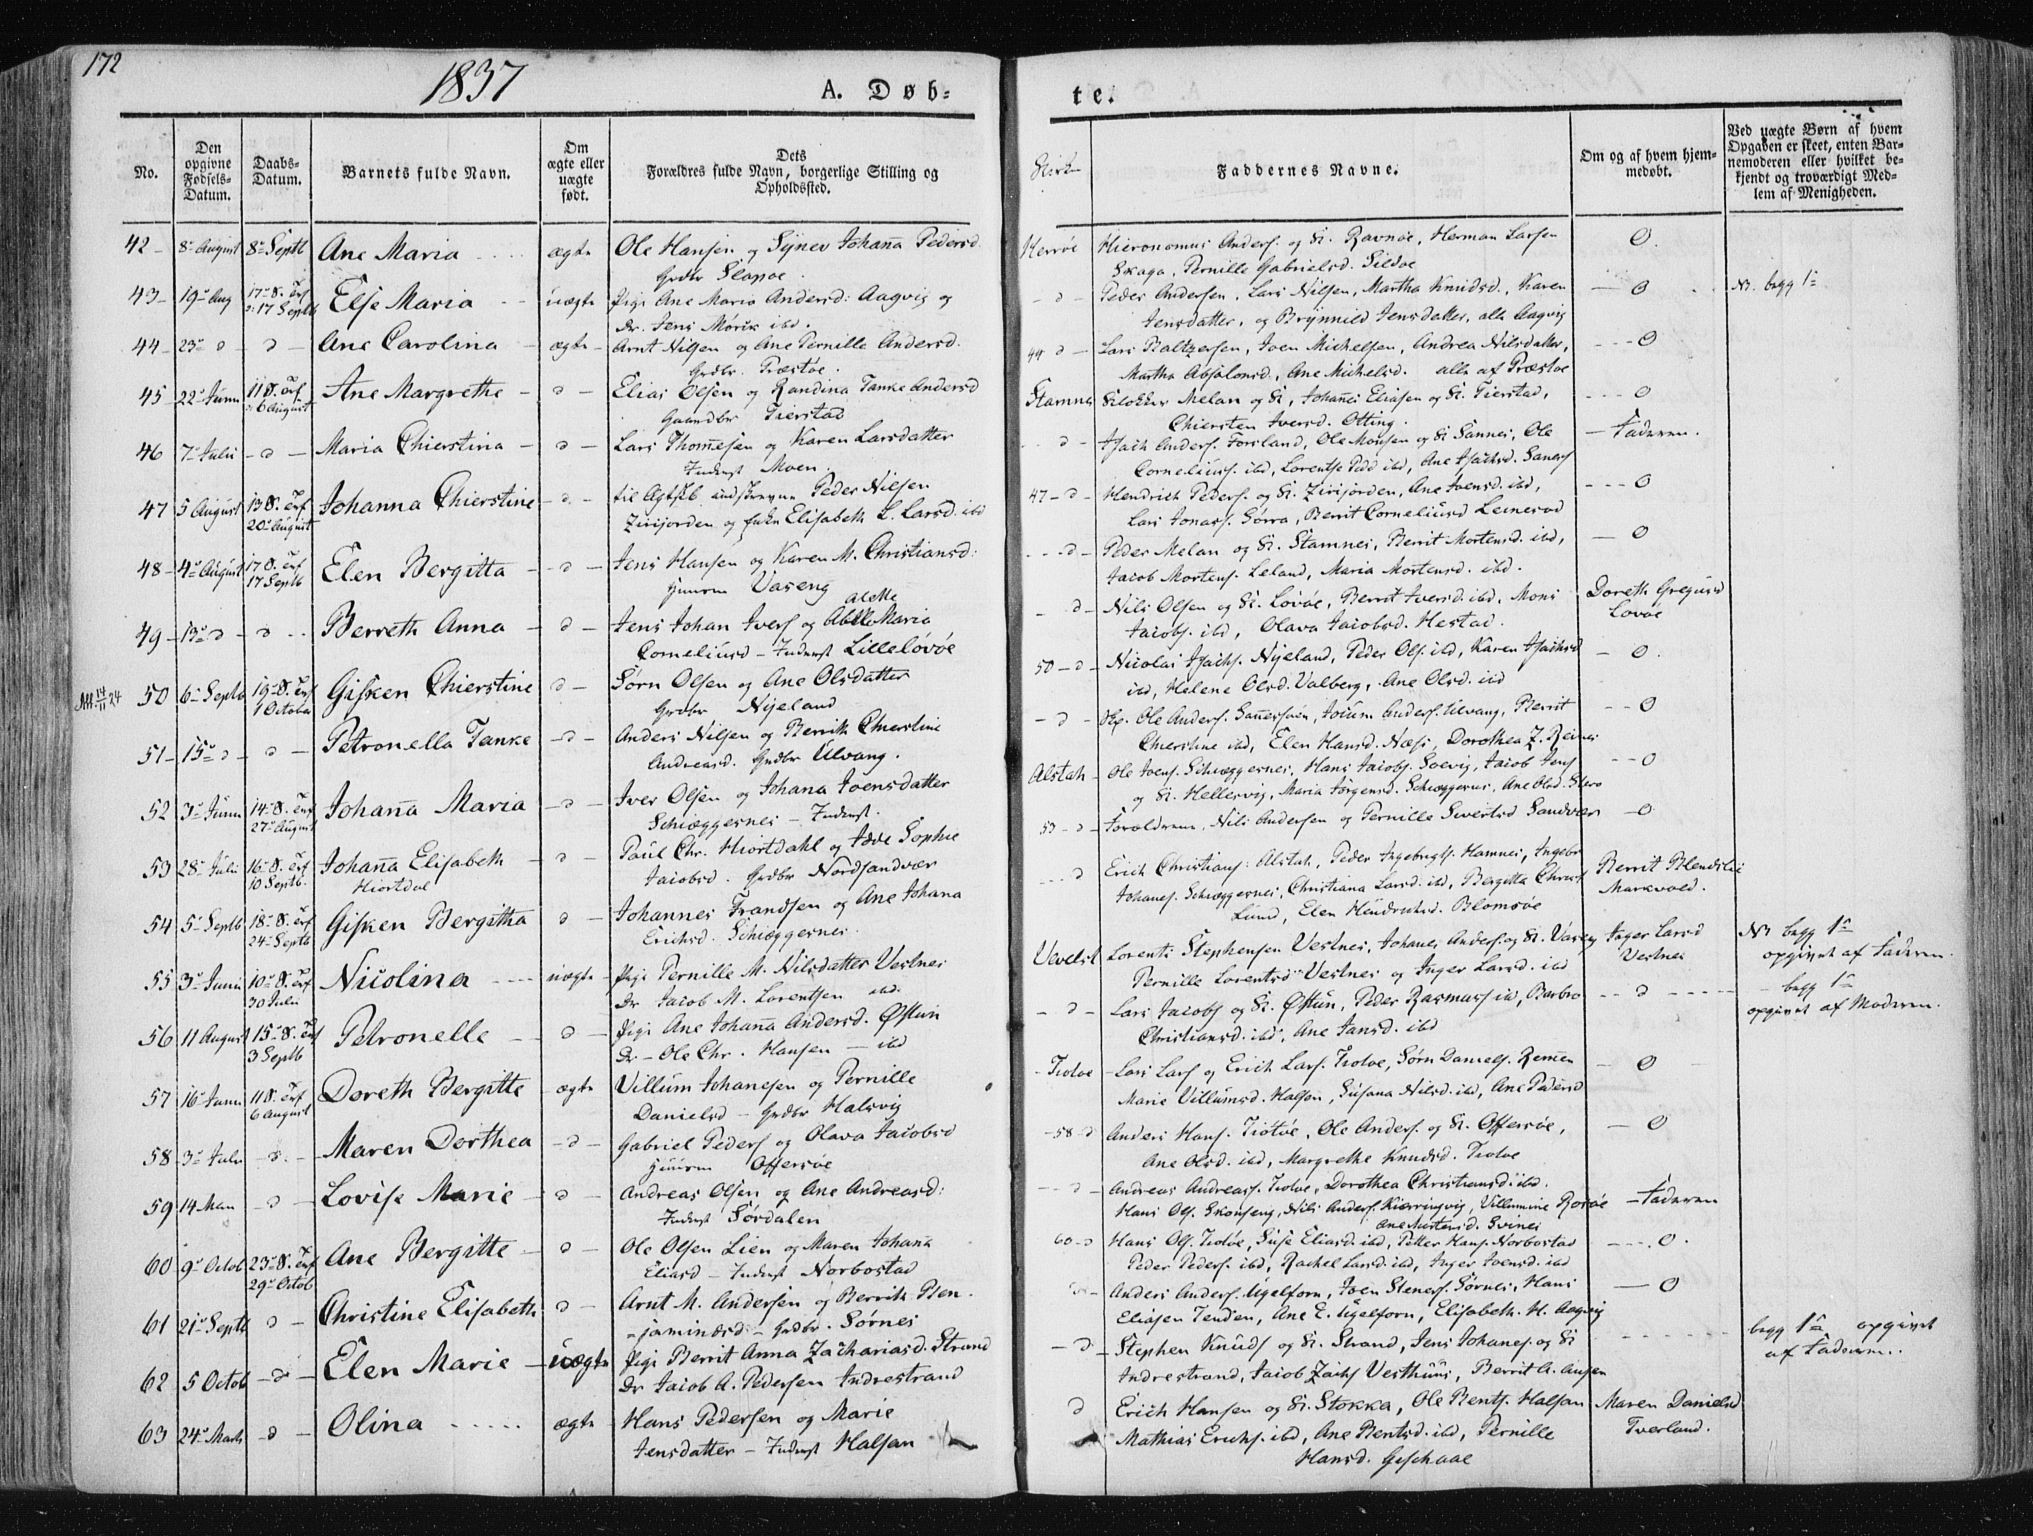 172
1837
A. Døb=
te.
No.
Den opgivne Fødsels-Datum.
Daabs-Datum.
Barnets fulde Navn.
Om ægte eller uægte født.
Dets Forældres fulde Navn, borgerlige Stilling og Opholdssted.
Kirke
Faddernes Navne.
Om og af hvem hjemmedøbt.
Ved uægte Børn af hvem Opgaven er skeet, enten Barnemoderen eller hvilket bekjendt og troværdigt Medlem af Menigheden.
42 - 8de August 8de Septb Ane Maria ægte Ole Hansen og Synev Johanna Pedersd.
Grdbr Slapøe.
Herrøe Hieronomus Anders. og K. Ravnøe, Herman Larsen
Skaga, Pernille Gabrielsd. Sildøe O.
43 - 19de Aug 17de S. Trf 17 Septb Else Maria uægte Pige Ane Maria Andersd: Aagvig og
Dr. Jens Mørik ibd.
- d - Peder Andersen, Lars Nilsen, Martha Knudsd., Karen
Jensdatter, og Brynnild Jensdatter, alle Aagvig - O N3. begg 1ste
44 - 23de d - d - Ane Carolina - ægte - Arnt Nilsen og Ane Pernille Andersd.
Grdbr. Træstøe.
44 d - Lars Baltzersen, Joen Michelsen, Andrea Nilsdatter,
Martha Absalonsd., Ane Michelsd. alle af Præstøe - - - O
45 22de Junii 11 S. Trf. 6 August Ane Margrethe - d - Elias Olsen og Randina Tanke Andersd
Gaardbr Tierstad
Stamnes Klokker Melan og K., Johannes Eliasen og K. Tierstad,
Chiersten Iversd. Otting. - - - O
46 7de Julii - d - Maria Chierstina - d - Lars Thomesen og Karen Larsdatter
Inderst Moen.
- d - Isach Anders. Forsland, Ole Monsen og K Sannes, Ole
Cornelius. ibd, Lorentse Ped ibd, Ane Isachsd. Sannes - Faderen.
47 5 August 13 S. Trf 20de August Johanna Chierstine - d - til Ægtsk indskrevne Peder Nilsen
Zirijorden og Elisabeth L. Larsd. ibd
47 - d - Hendrich Peders. og K. Zirijorden, Ane Joensd. ibd,
Lars Jonas. Sørra, Berrit Corneliusd Leinesod - - - O
48 - 4de August 17 S. Trf 17 Septb Elen Bergitta - d - Jens Hansen og Karen M. Christiansd:
Huusm Vaseng
- - - d - Peder Melan og K. Stamnes, Berrit Mortensd. ibd,
Jacob Mortens. Leland, Maria Mortensd. ibd. - O
49 - 13de d - d - Berreth Anna - d - Jens Johan Ivers. og Maria
Corneliusd - Inderst Lilleløvøe
- d - Nils Olsen og K. Løvøe, Berrit Iversd. ibd, Mons
Jacobs. ibd, Olava Jacobsd. Hestad. Doreth Gregusd
Løvøe
14/11 24
50 6de Septb 19de S. Trf 1 October Gisken Chierstine d - Sørn Olsen og Ane Olsdatter
Grdbr Nyeland
50 - d - Nicolai Isachs. Nyeland, Peder Ols. ibd, Karen Isachsd
ibd, Helene Olsd. Valberg, Ane Olsd. ibd - O.
51 - 15de d - d - Petronella Tanke - d - Anders Nilsen og Berrith Chierstine
Andreasd. Grdbr Ulvang.
- d - Ole Anders. Sannersøen, Joium Anders. Ulvang, Berrit
Chierstine ibd, Elen Hansd. Næss, Dorothea Z. Reines - - O
52 3de Junii 14de S. Trf 27de August Johanna Maria - d - Iver Olsen og Johana Joensdatter
Schiæggesnes - Inderst.
Alstah - Ole Joens. Schiæggesnes, Hans Jacobs. Soevig, Jacob Jens
og K. Hellesvig, Maria Jørgensd. Schiæggesnes, Ane Olsd. - - O
53 28de Julii 16de S. Trf 10 Septb. Johanna Elisabeth
Hiortdal - d - Paul Chr. Hiortdahl og Sophie
Jacobsd. Grdbr Nordsandvær
53 - d - Forældrene, Nils Andersen og Pernille Sivertsd Sandvær - O
54 5de Septb 18de S. Trf 24de Septb Gisken Bergitha d - Johannes Frandsen og Ane Johana
Erichsd. Schiæggesnes.
- - - d Erich Christians: Alstah, Peder Ingebrigts. Hamnes, Ingebr
Johanes. Schiæggesnes, Christiana Larsd. ibd, Bergitta Christ
Lund, Elen Hendrichsd. Blomsøe Berrit
Markvold.
55 3de Junii 10de S. Trf 30 Julii Nicolina uægte - Pige Pernille M. Nilsdatter Vestnes
Dr. Jacob M. Lorentsen ibd.
Vevelst Lorents Stephensen Vestnes, Johanes Anders. og K. Vasey
Pernille Lorentsd Vestnes og Inger Larsd. ibd Inger Larsd
Vestnes N3 begg 1ste
opgivet af Faderen.
56 11 August 15de S. Trf 3 Septb Petronelle - d - Pige Ane Johanna Andersd. Østun
Dr. - Ole Chr. Hansen - ibd
- d - Lars Jacobs. og K. Østun, Peder Rasmus. ibd, Barbro
Christiansd. ibd, Ane Jansd. ibd - - d - - - - begg 1ste
opgivet af Moderen.
57 16de Junii 11 S. Trf 6 August Doreth Bergitte - ægte Villum Johanesen og Pernille
Danielsd - Grdbr Halsvig
- Tiotøe - Lars Lars. og Erich Lars. Tiotøe, Sørn Daniels. Remen
Marie Villumsd. Halsen, Susana Nilsd. ibd, Ane Pedersd - O
58 3de Julii - d. - Maren Dorthea - d - Gabriel Peders. og Olava Jacobsd
Huusm Offersøe
- 58 - d Anders Hans. Tiotøe, Ole Anders. og K. Offersøe,
Ane Olsd. ibd, Margrethe Knudsd. Tiotøe - O
59 14 Mai - d - Lovise Marie - d - Andreas Olsen og Ane Andreasd:
Inderst Sørdalen
- - - d Andreas Andreas. Tiotøe, Dorothea Christiansd. ibd.
Hans Ols. Skonseng, Nils Anders. Kierringvig, Villumine Rosøe
Ane Mortensd. Svines - Faderen
60 9de Octob 23de S. Trf 29de Octob Ane Bergitte - d - Ole Olsen Lien og Maren Johana
Eliasd - Inderst Norbostad
60 - d Hans Ols. Tiotøe, Suse Eliasd. ibd, Petter Hans. Norbostad
Peder Peders. ibd, Rachel Larsd. ibd, Inger Joensd. ibd - - - . O.
61 21de Septb d - Christine Elisabeth d - Arnt M. Andersen og Berrith Ben-
-jaminsd - Grdbr. Sørnes
Anders Anders. Ugelforn, Joen Steners. Sørnes, Hans
Eliasen Tenden, Ane E. Ugelforn, Elisabeth H. Aagvig - O
62 5 Octob - d - Elen Marie - uægte Pige Berrit Anna Zachariasd. Strand
Dr Jacob A. Pedersen Indrestrand
- d - Stephen Knuds. og K. Strand, Jens Johanes. og K
Indrestrand, Jacob Zachs. Vesthuus, Berrit A. begg 1ste opgivet
af Faderen.
63 24de Marts - d - Olina ægte Hans Pedersen og Marie
Jensdatter - Inderst Halsan
d Erich Hansen og K. Stokka, Ole Bents. Halsan
Mathias Erichs. ibd, Ane Bentsd. ibd, Pernille
Hansd. Geschaal Maren Danielsd
Tverland.